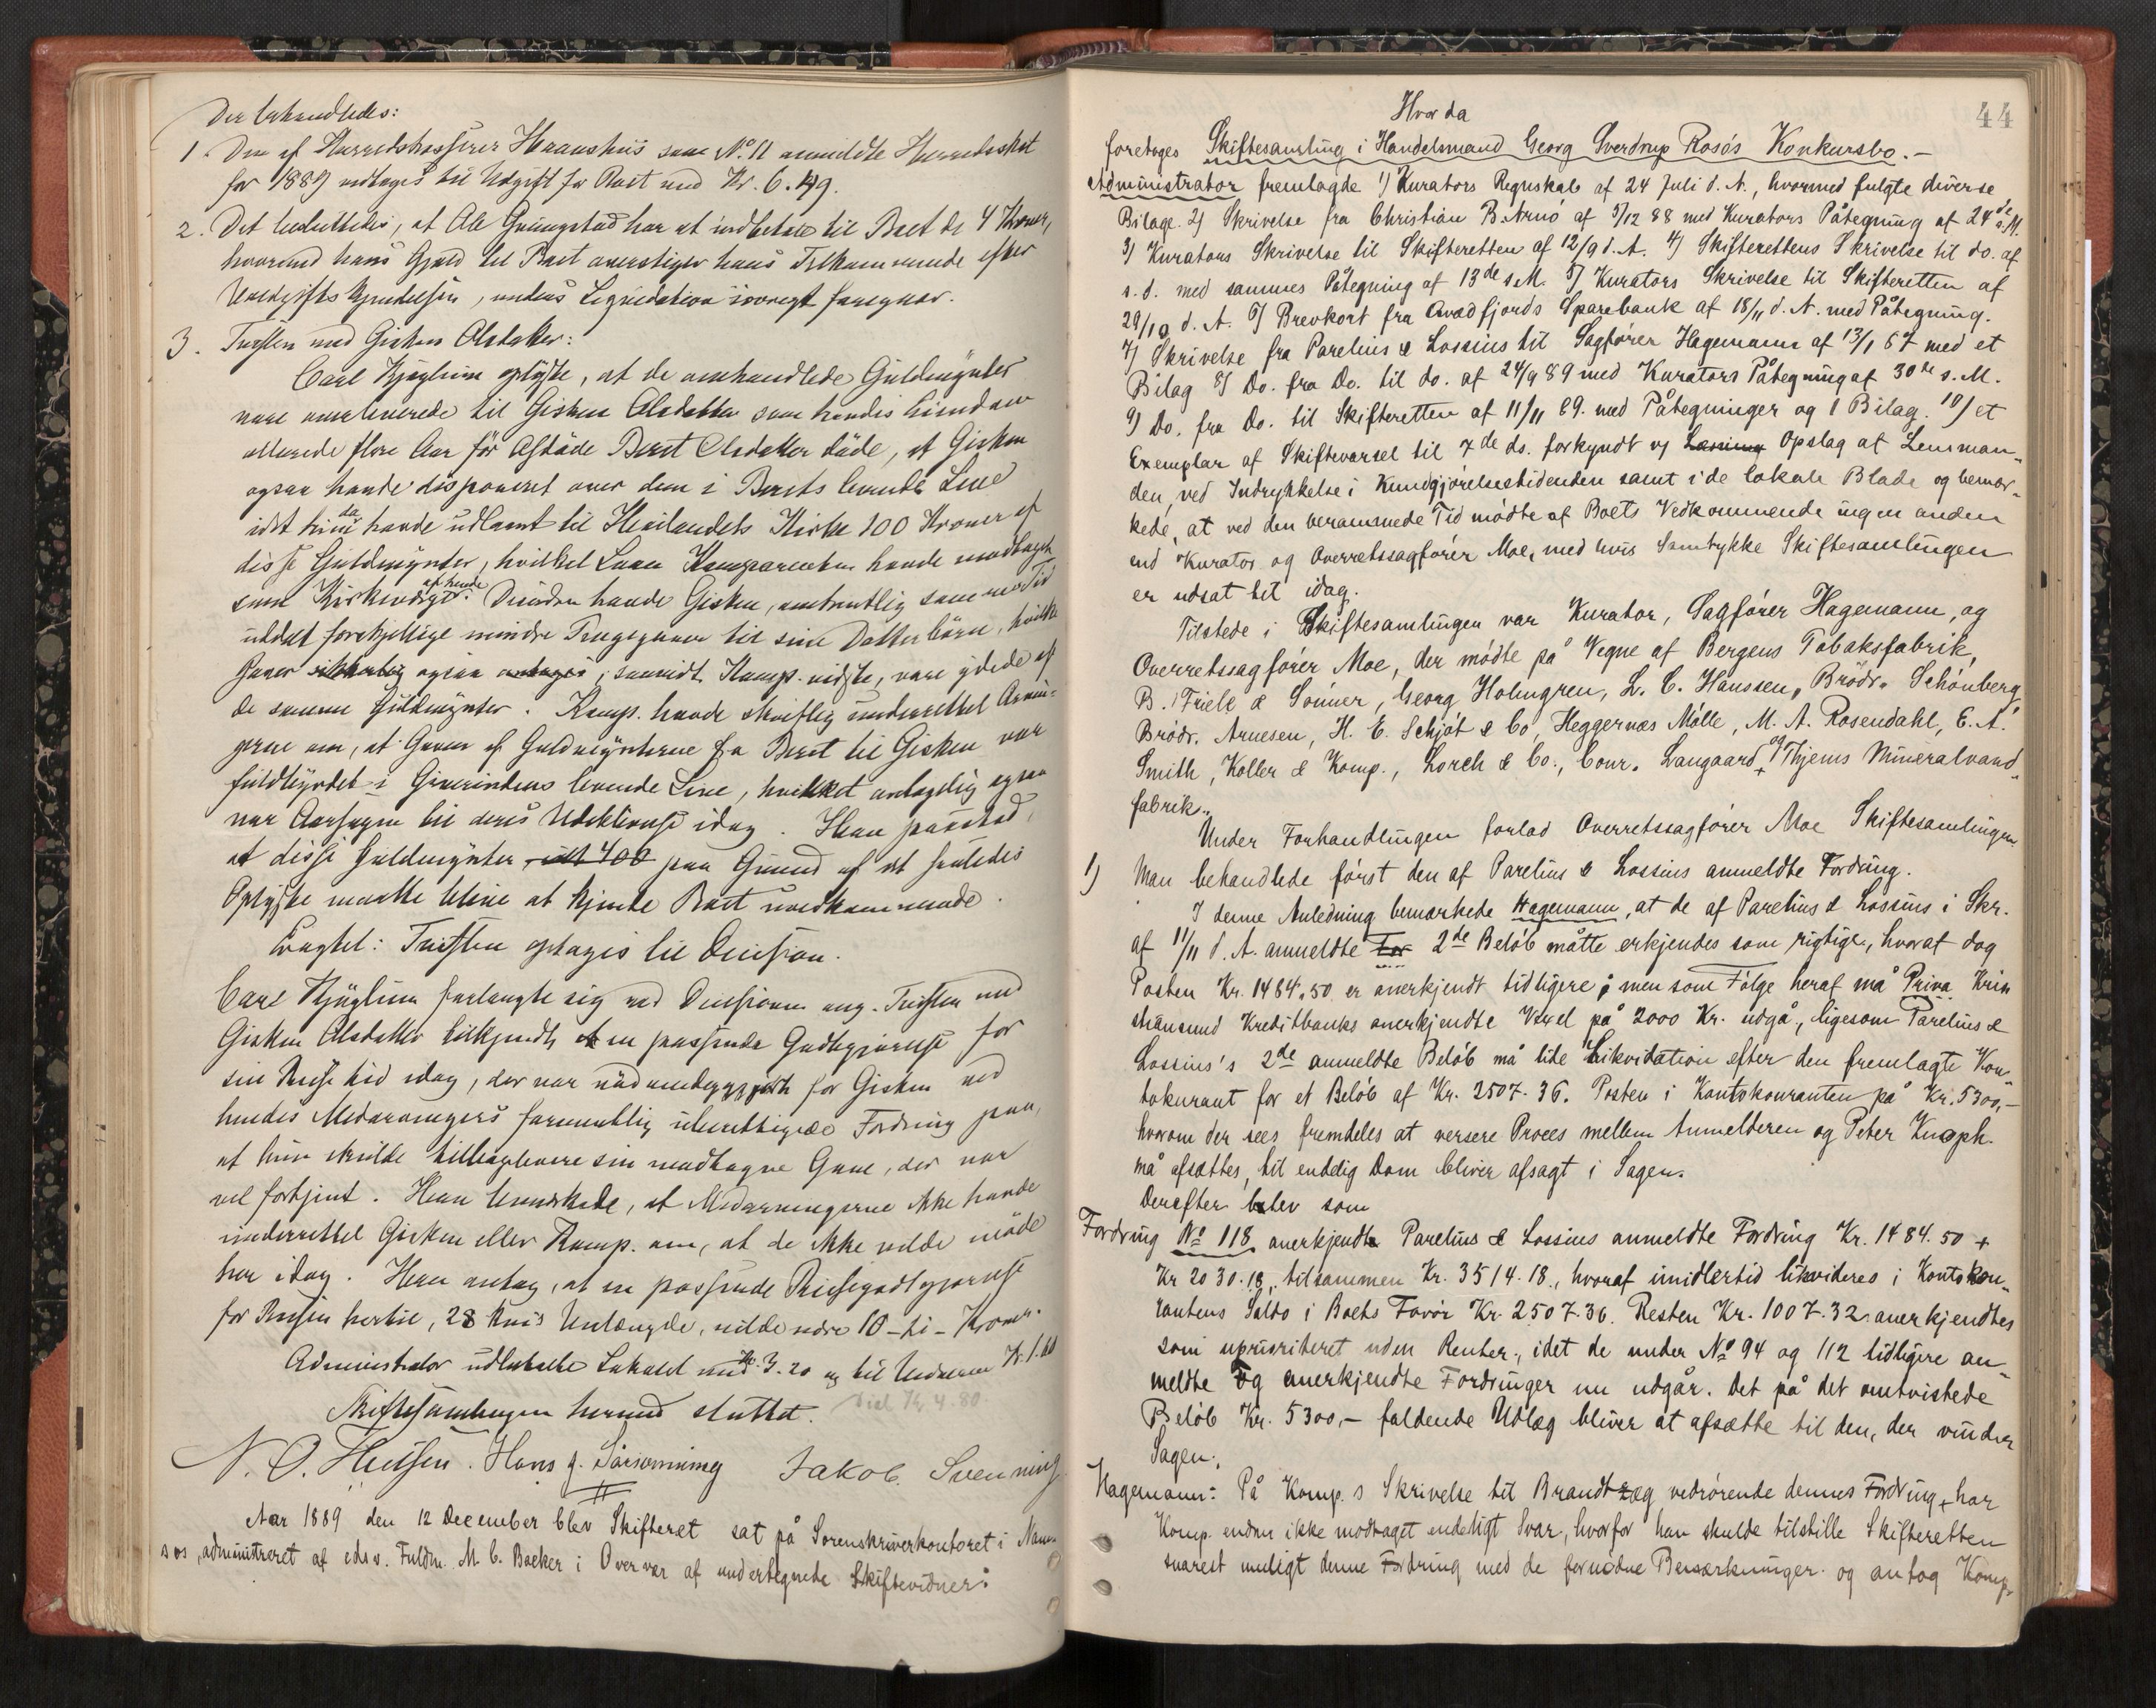 Der behandledes:
1. Den af Herredskasserer Haanshus som No. 11 anmeldte Herredsskat
for 1889 udtages til Udgift for Boet med Kr. 6.49.
2. Det besluttedes, at Ole Grungstad har at indbetale til Boet de 4 Kroner,
hvormed hans Gjæld til Boet overstiger hans Tilkommende efter
Udlodning, Liqvidation iøvrigt foregaar.
3. Tvisten med Gisken Olsdatter:
Carl Kjøglum oplyste, at de omhandlede Guldmynter
vare overleverede til Gisken Olsdatter som hendes Eiendom
allerede flere Aar før Afdøde Beret Olsdatter døde, at Gisken
ogsaa havde disponeret over dem i Berets levende Live
idet hun da havde udlaant til Heilandets Kirke 100 Kroner af
disse Guldmynter, hvilket Laan Komparenten havde modtaget
som Kirkeværge af hende. Desuden havde Gisken, omtrentlig samme Tid
uddelt forskjellige mindre Pengegaver til sine Datterbørn, hvilke
Gaver sikkerlig ogsaa antages, saavidt Komp. vidste, vare ydede af
de samme Guldmynter. Komp. havde skriftlig underrettet Arvin-
gerne om, at Gaven af Guldmynterne fra Beret til Gisken var
fuldbyrdet i Giverindens levende Live, hvilket antagelig ogsaa
var Aarsagen til deres Udeblivelse idag. Han paastod,
at disse Guldmynter, idt 400 paa Grund af det saaledes
Oplyste maatte blive at kjende Boet uvedkommende.
Eragtet: Tvisten optages til Decision.
Carl Kjøglum forlangte sig ved Decisionen ang. Tvisten med
Gisken Olsdatter tilkjendt en passende Godtgjørelse for
sin Reise hid idag, der var nødvendiggjort for Gisken ved
hendes Medarvingers formentlig uberettigede Fordring paa,
at hun skulde tilbagelevere sin modtagne Gave, der var
vel fortjent. Han bemærkede, at Medarvingerne ikke havde
underrettet Gisken eller Komp. om, at de ikke vilde møde
her idag. Han antog, at en passende Reisegodtgjørelse
for Reisen hertil, 28 Km's Veilængde, vilde være 10 - ti - Kroner.
Administrator udbetalte Lokalet med Kr. 3.20 og til Vidnerne Kr. 1.60
Skiftesamlingen hermed sluttet.
Jakob Svenning
Aar 1889 den 12 December blev Skifteret sat på Sorenskriverkontoret i Nam-
sos, administreret af edsv. Fuldm. M. C. Backer i Overvær af undertegnede Skiftevidner:
44
Hvor da
foretoges Skiftesamling i Handelsmand Georg Sverdrup Rosøs Konkursbo.-
Administrator fremlagde 1) Kurators Regnskab af 24 Juli d. A., hvormed fulgte diverse
Bilage. 2) Skrivelse fra Christian B. Arnø af 5/12 88 med Kurators Påtegning af 24de s. M.
3) Kurators Skrivelse til Skifteretten af 12/9 d. A. 4) Skifterettens Skrivelse til do. af
s. d. med sammes Påtegning af 13de s. M. 5) Kurators Skrivelse til Skifteretten af
29/10 d. A. 6) Brevkort fra Qvædfjords Sparebank af 18/11 d. A. med Påtegning.
7) Skrivelse fra Parelius & Lossius til Sagfører Hagemann af 13/1 87 med et
Bilag 8) Do. fra Do. til do. af 24/9 89 med Kurators Påtegning af 30te s. M.
9) Do. fra Do. til Skifteretten af 11/11 89. med Påtegninger og 1 Bilag. 10) et
Exemplar af Skiftevarsel til 7de ds. forkyndt v/ Læsning Opslag af Lensman-
den, ved Indrykkelse i Kundgjørelsestidenden samt i de lokale Blade og bemær-
kede, at ved den berammede Tid mødte af Boets Vedkommende ingen anden
end Kurator og Overretssagfører Moe, med hvis Samtykke Skiftesamlingen
er udsat til idag.
Tilstede i Skiftesamlingen var Kurator, Sagfører Hagemann, og
Overretssagfører Moe, der mødte på Vegne af Bergens Tobaksfabrik,
B. Friele & Sønner, Georg Holmgren, L. C. Hanssen, Brødr. Schönberg,
Brødr. Arnesen, H. E. Schjøt & Co, Heggernæs Mølle, M. A. Rosendahl, E. A.
Smith, Koller & Komp., Lorch & Co., Conr. Langaard, og Thjems Mineralvand-
fabrik.
Under Forhandlingen forlod Overretssagfører Moe Skiftesamlingen.
1) Man behandlede først den af Parelius & Lossius anmeldte Fordring.
I denne Anledning bemærkede Hagemann, at de af Parelius & Lossius i Skr.
af 11/11 d. A. anmeldte For 2de Beløb måtte erkjendes som rigtige, hvoraf dog
Posten Kr. 1484.50 er anerkjendt tidligere; men som Følge heraf må Priva Krist
stiansund Kreditbanks anerkjendte Vexel på 2000 Kr. udgå, ligesom Parelius &
Lossius's 2de anmeldte Beløb må lide Likvidation efter den fremlagte Kon-
tokurant for et Beløb af Kr. 2507.36. Posten i Kontokouranten på Kr. 5300,-
hvorom der sees fremdeles at versere Proces mellem Anmelderen og Peter Knoph
må afsættes, til endelig Dom bliver afsagt i Sagen.
Derefter blev som
Fordring No 118 anerkjendt Parelius & Lossius anmeldte Fordring Kr. 1484.50 +
Kr 2030.18, tilsammen Kr. 3514.18, hvoraf imidlertid likvideres i Kontokou-
rantens Saldo i Boets Favør Kr. 2507.36. Resten Kr. 1007.32 anerkjendtes
som uprioriteret uden Renter, idet de under No 94 og 112 tidligere an-
meldte og anerkjendte Fordringer nu udgår. Det på det omtvistede
Beløb Kr. 5300,- faldende Udlæg bliver at afsætte til den, der vinder
Sagen.
Hagemann: På Komp.s Skrivelse til Brandtzæg vedrørende dennes Fordring, har
Komp. endnu ikke modtaget endeligt Svar, hvorfor han skulde tilstille Skifteretten
snarest muligt denne Fordring med de fornødne Bemærkninger og antog Komp.